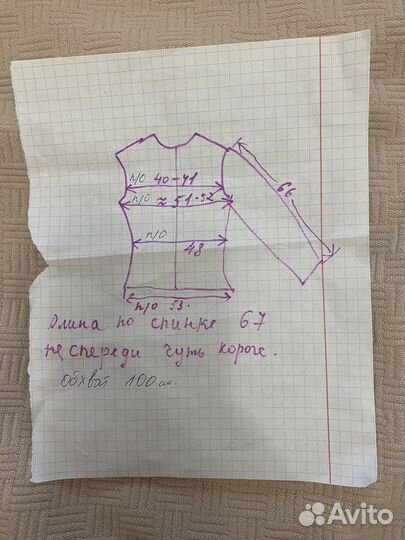 п/о 40-41
п/о ≈ 51-52
66
п/о
48
п/о 53.
Длина по спинке 67
спереди чуть короче.
обхват 100 см.
Avito